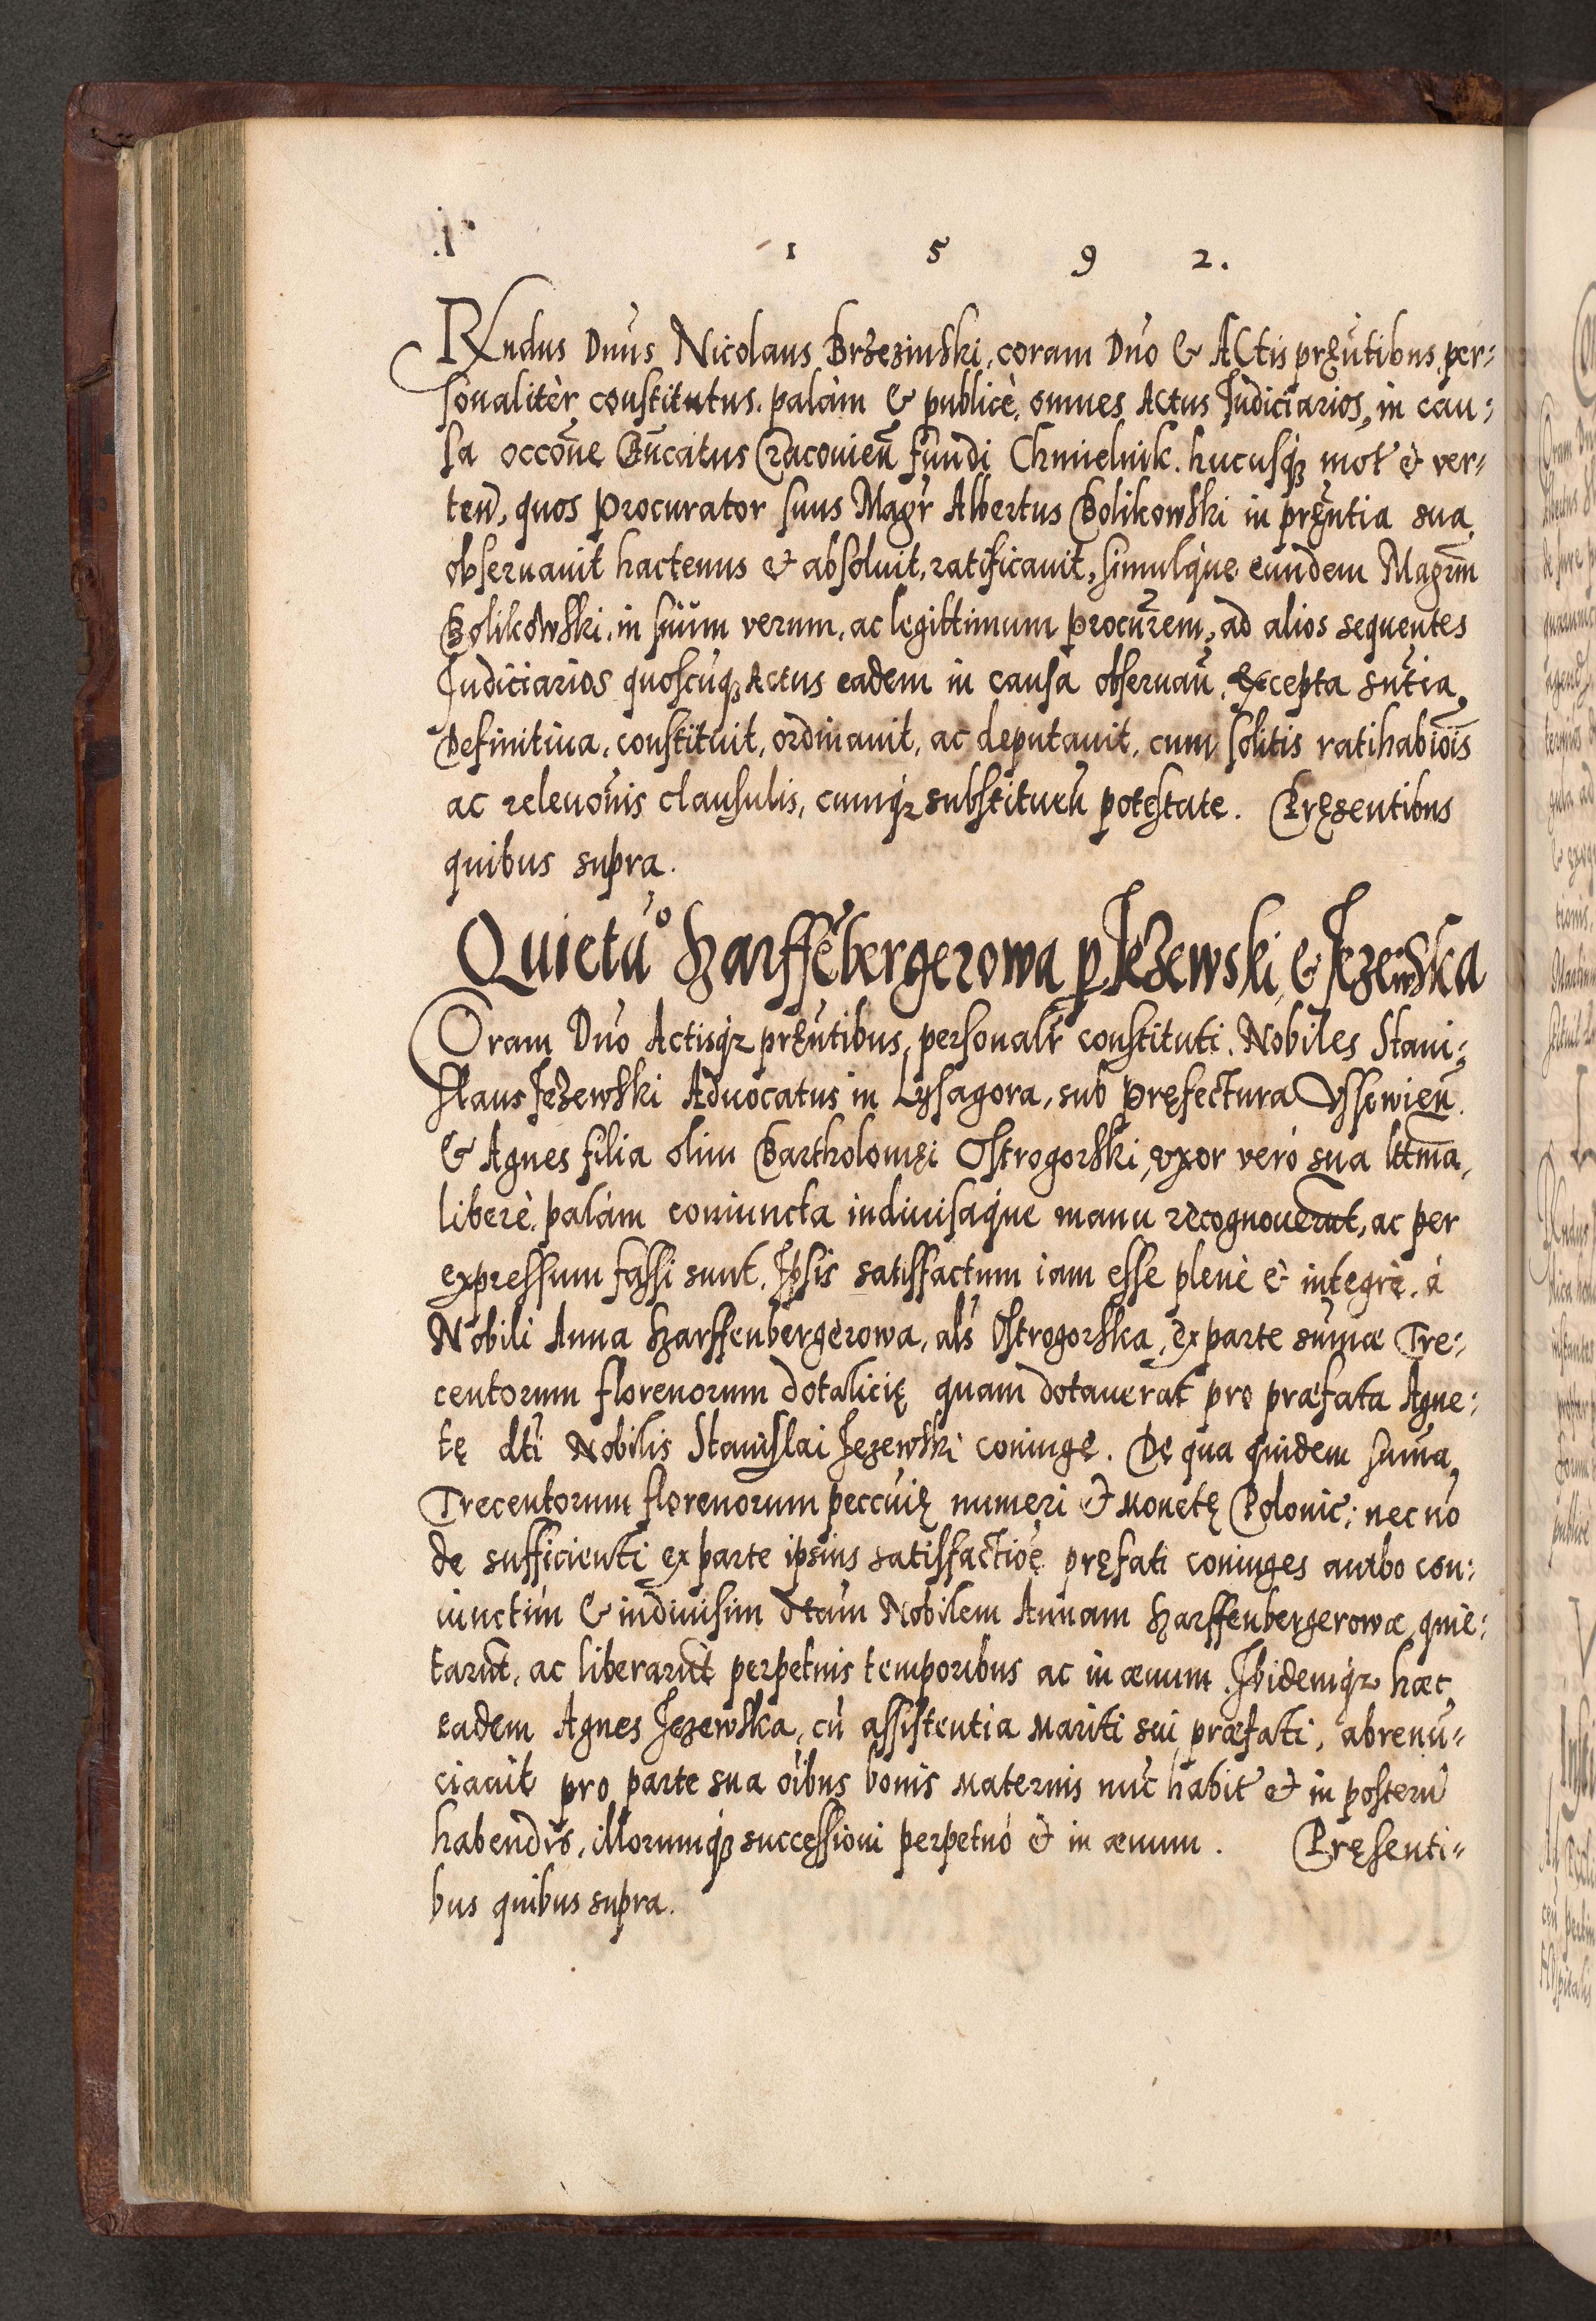 1 5 9 2.
Rndus Dnus Nicolaus Brzezinski, coram Dno & Actis pręntibus, per-
sonalitèr constitutus. palàm & publicè, omnes Actus Judiciarios, in cau-
sa occōne Cracouien̄ fundi Chmielnik. hucusq3 mot̄ & ver-
ten̄, quos Procurator suus Magr̄ Albertus Bolikowski in pręntia sua
obseruauit hactenus & absoluit, ratificauit, simulque eundem Magrm̄
Bolikowski, in suum verum, ac legittimum procur̄em, ad alios sequentes
Judiciarios quoscūq3 Actus eadem in causa obseruan̄, excepta sn̄tia
Definitiua, constituit, ordinauit, ac deputauit, cum solitis ratihabiōis
ac releuōnis clausulis, cumq3 substituen̄ potestate. Pręsentibus
quibus supra.
Quietu͞o Harffēbergerowa p Jeżewski & Jezewska
Coram Dno Actisq3 pręntibus, personalr̄ constituti. Nobiles Stani-
slaus Jeżewski Aduocatus in Lysagora, sub Pręfectura Vssewien̄.
& Agnes filia olim Bartholomęi Ostrogorski, vxor verò sua lttma,
liberè, palàm coniuncta indiuisaque manu recognouerūt, ac per
expressum fassi sunt. Ipsis satisfactum iam esse plenè & integrè. à
Nobili Anna Harffenbergerowa, als Ostrogorska, ex parte sūmæ Tre-
centorum florenorum dotalicię quam dotauerat pro præfata Agne-
tę dti Nobilis Stanislai Jezewski coniuge. De qua quidem sūma
Trecentorum florenorum peccuię numeri & Monetę Polonic: nec nō
de sufficienti ex parte ipsius satisfactiōe pręfati coniuges ambo con-
iunctim & indiuisim dtam Nobilem Annam Harffenbergerowæ quie-
tarūt, ac liberarūt perpetuis temporibus ac in æuum. Ibidemq3 hæc
eadem Agnes Jezewska, cū assistentia Mariti sui præfati, abrenū-
ciauit pro parte sua oībus bonis Maternis nūc habit̄ & in posterū
habendis, illorumq3 successioni perpetuò & in æuum. Pręsenti-
bus quibus supra.